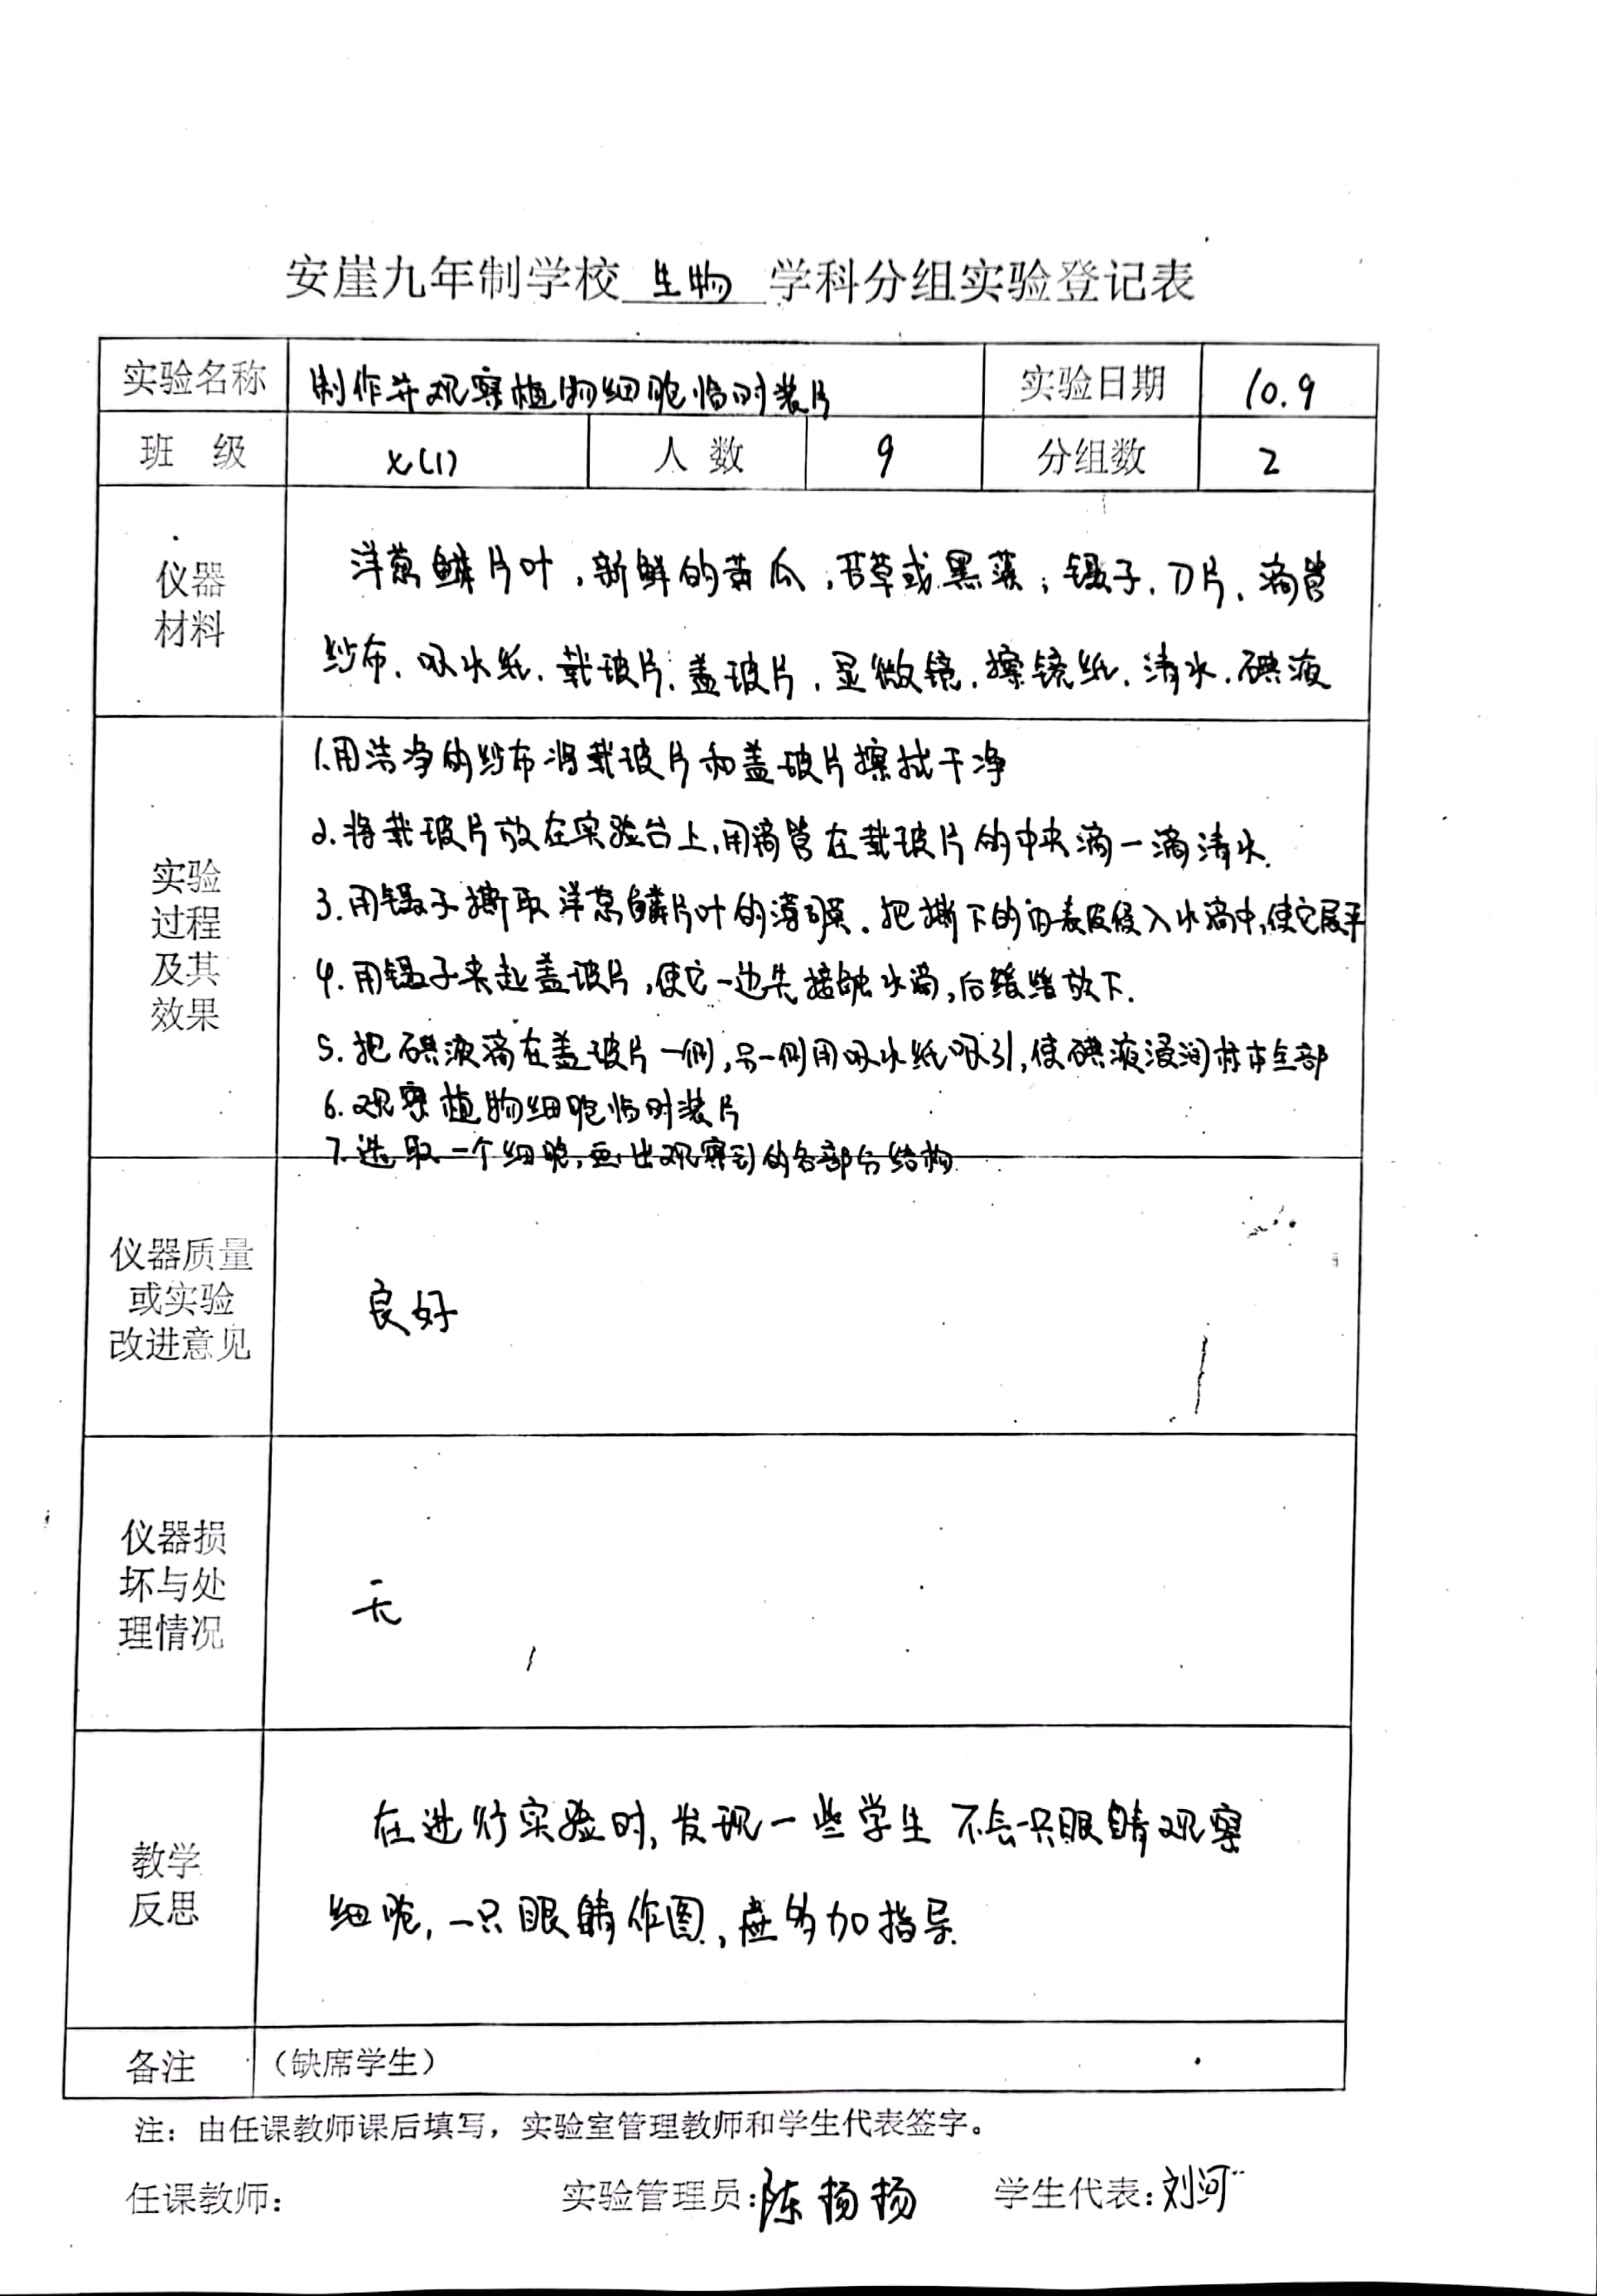 安崖九年制学校 生物 学科分组实验登记表
实验名称 制作并观察植物细胞临时装片 实验日期 10.9
班 级 (1) 人 数 9 分组数 2
仪器材料
洋葱鳞片叶，新鲜的黄瓜，苦草或黑藻；镊子、刀片、滴管
纱布、吸水纸、载玻片、盖玻片、显微镜、擦镜纸、清水、碘液
实验过程及其效果
1.用洁净的纱布将载玻片和盖玻片擦拭干净
2.将载玻片放在实验台上,用滴管在载玻片的中央滴一滴清水.
3.用镊子撕取洋葱鳞片叶的薄膜.把撕下的内表皮侵入水滴中,使它展平
4.用镊子夹起盖玻片,使它一边先接触水滴,后缓缓放下.
5.把碘液滴在盖玻片一侧,另一侧用吸水纸吸引,使碘液浸润标本全部
6.观察植物细胞临时装片
7.选取一个细胞,画出观察到的各部分结构
仪器质量
或实验
改进意见
良好
仪器损
坏与处
理情况
无
教学
反思
在进行实验时,发现一些学生不会一只眼睛观察
细胞,一只眼睛作图,应多加指导.
备注 （缺席学生）
注：由任课教师课后填写，实验室管理教师和学生代表签字。
任课教师： 实验管理员：陈扬扬 学生代表：刘河